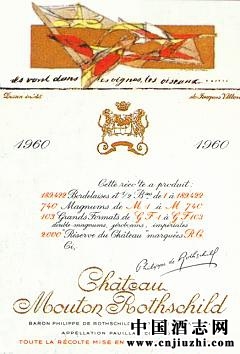 ils vont dans les vignes, les oiseaux......
Dessin inédit de Jacques Villon
1960 1960
Cette récolte a produit:
189422 Bordelaises et ½ Btes de 1 à 189422
740 Magnums de M 1 à M 740
103 Grands Formats de GF 1 à GF103
double magnums, jéroboams, impériales
2000 Réserve du Château marquées R.C.
Ci,
Philippe de Rothschild
Château
Mouton Rothschild
BARON PHILIPPE DE ROTHSCHILD
APPELLATION PAUILLAC
TOUTE LA RÉCOLTE MISE EN
中国酒志网
www.zhongguojiuzhi.com